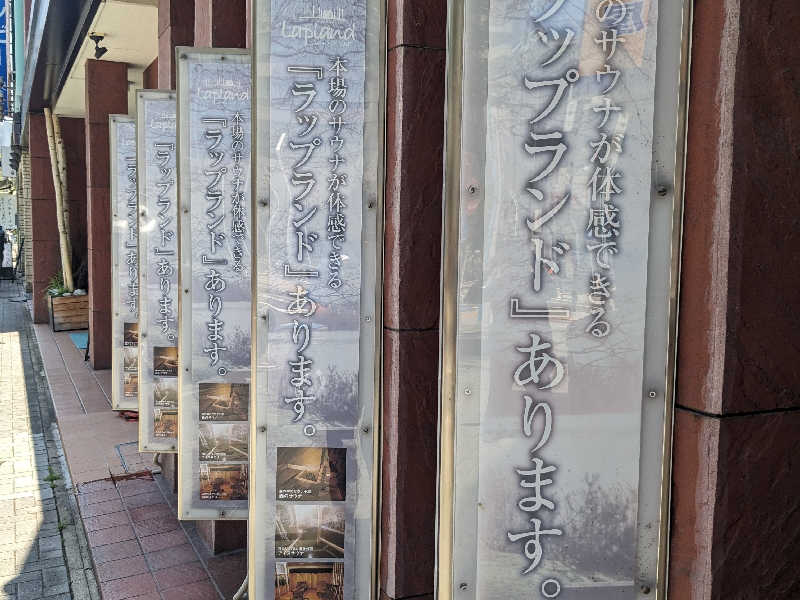 Lapland
本場のサウナが体感できる
『ラップランド』あります。
Lapland
本場のサウナが体感できる
『ラップランド』あります。
『ラップランド』あります。
『ラップランド』あります。
のサウナが体感できる
ラップランド』あります。